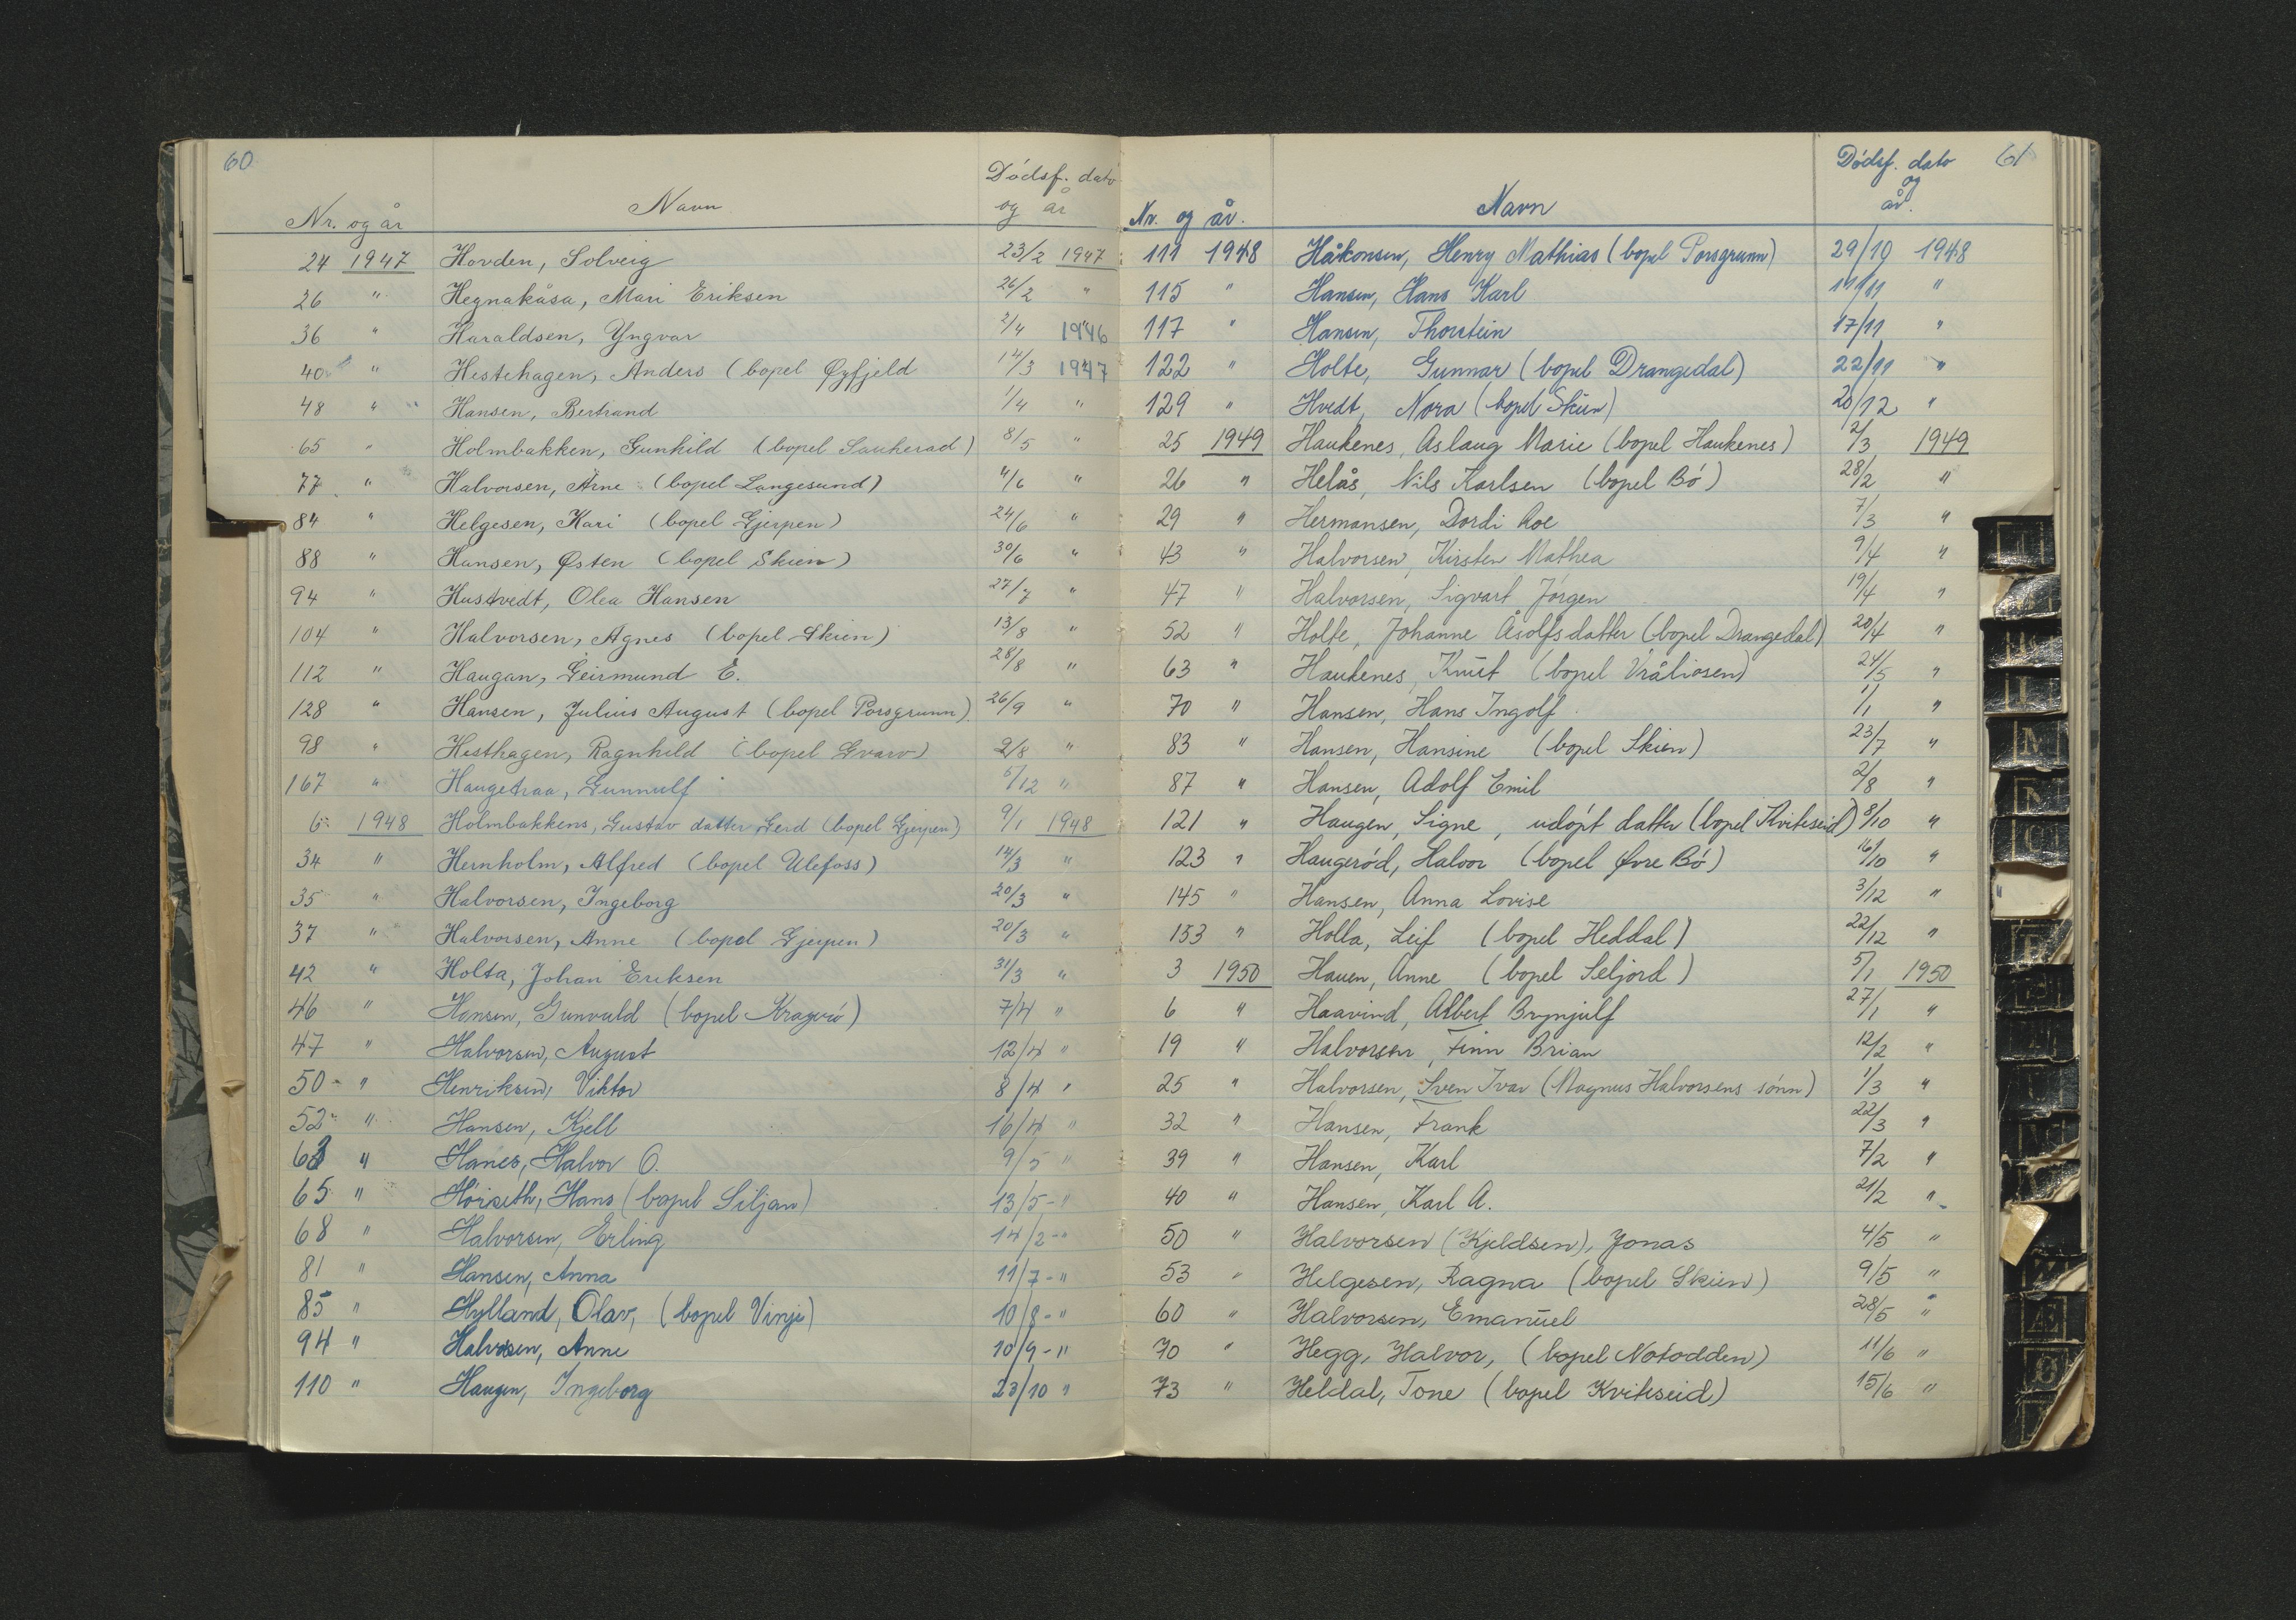 60
Dødsf. dato
Nr. og år Navn og år
24 1947 Hovden, Solveig 23/2 1947
26 " Hegnakåsa, Mari Eriksen 26/2 "
36 " Haraldsen, Yngvar 2/4 1946
40 " Hestehagen, Anders (bopel Øyfjeld 14/3 1947
48 " Hansen, Bertrand 1/4 "
65 " Holmbakken, Gunhild (bopel Sauherad) 8/5 "
77 " Halvorsen, Arne (bopel Langesund) 4/6 "
84 " Helgesen, Kari (bopel Gjerpen) 24/6 "
88 " Hansen, Østen (bopel Skien) 30/6 "
94 " Hustvedt, Olea Hansen 27/7 "
104 " Halvorsen, Agnes (bopel Skien) 13/8 "
112 " Haugan, Geirmund E. 28/8 "
128 " Hansen, Julius August (bopel Porsgrunn) 26/9 "
98 " Hesthagen, Ragnhild (bopel Gvarv) 2/8 "
167 " Haugetraa, Gunnulf /12 "
6 1948 Holmbakkens, Gustav datter Gerd (bopel Gjerpen) 9/1 1948
34 " Hernholm, Alfred (bopel Ulefoss) 14/3 "
35 " Halvorsen, Ingeborg 20/3 "
37 " Halvorsen, Anne (bopel Gjerpen) 20/3 "
42 " Holta, Johan Eriksen 31/3 "
46 " Hansen, Gunvald (bopel Kragerø) 7/4 "
47 " Halvorsen, August 12/4 "
50 - " Henriksen, Viktor 8/4 "
52 " Hansen, Kjell 16/4 "
63 " Hanes, Halvor O. 9/5 "
65 " Hørseth, Hans (bopel Siljan) 13/5 - "
68 " Halvorsen, Erling 14/2 - "
81 " Hansen, Anna 11/7 - "
85 " Hylland, Olav, (bopel Vinje) 10/8 - "
94 " Halvorsen, Anne 10/9 - "
110 " Haugen, Ingeborg 23/10 "
Dødsf. dato 61
og
Nr. og år. Navn år.
111 1948 Håkonsen, Henry Mathias (bopel Porsgrunn) 29/10 1948
115 " Hansen, Hans Karl /11 "
117 " Hansen, Thorstein 17/11 "
122 " Holte, Gunnar (bopel Drangedal) 22/11 "
129 " Hvedt, Nora (bopel Skien) 20/12 "
25 1949 Haukenes, Aslaug Marie (bopel Haukenes) 2/3 1949
26 " Helås, Nils Karlsen (bopel Bø) 28/2 "
29 " Hermansen, Dordi Roe 7/3 "
43 " Halvorsen, Kirsten Mathea 9/4 "
47 " Halvorsen, Sigvart Jørgen 19/4 "
52 " Holte, Johanne Åsolfsdatter (bopel Drangedal) 20/4 "
63 " Haukenes, Knut (bopel Vråliosen) 24/5 "
70 " Hansen, Hans Ingolf 1/1 "
83 " Hansen, Hansine (bopel Skien) 23/7 "
87 " Hansen, Adolf Emil 2/8 "
121 " Haugen, Signe, udøpt datter (bopel Kviteseid) 8/10 "
123 " Haugerød, Halvor (bopel Øvre Bø) 16/10 "
145 " Hansen, Anna Lovise 3/12 "
153 " Holla, Leif (bopel Heddal) 22/12 "
3 1950 Hauen, Anne (bopel Seljord) 5/1 1950
6 " Haavind, Albert Brynjulf 27/1 "
19 " Halvorsen, Finn Brian 12/2 "
25 " Halvorsen, Sven Ivar (Magnus Halvorsens sønn) 1/3 "
32 " Hansen, Frank 22/3 "
39 " Hansen, Karl 7/2 "
40 " Hansen, Karl A. 21/2 "
50 " Halvorsen (Kjeldsen), Jonas 4/5 "
53 " Helgesen, Ragna (bopel Skien) 9/5 "
60 " Halvorsen, Emanuel 28/5 "
70 " Hegg, Halvor, (bopel Notodden) 11/6 "
73 " Heldal, Tone (bopel Kviteseid) 15/6 "
M
N
O
P
Æ
Ø